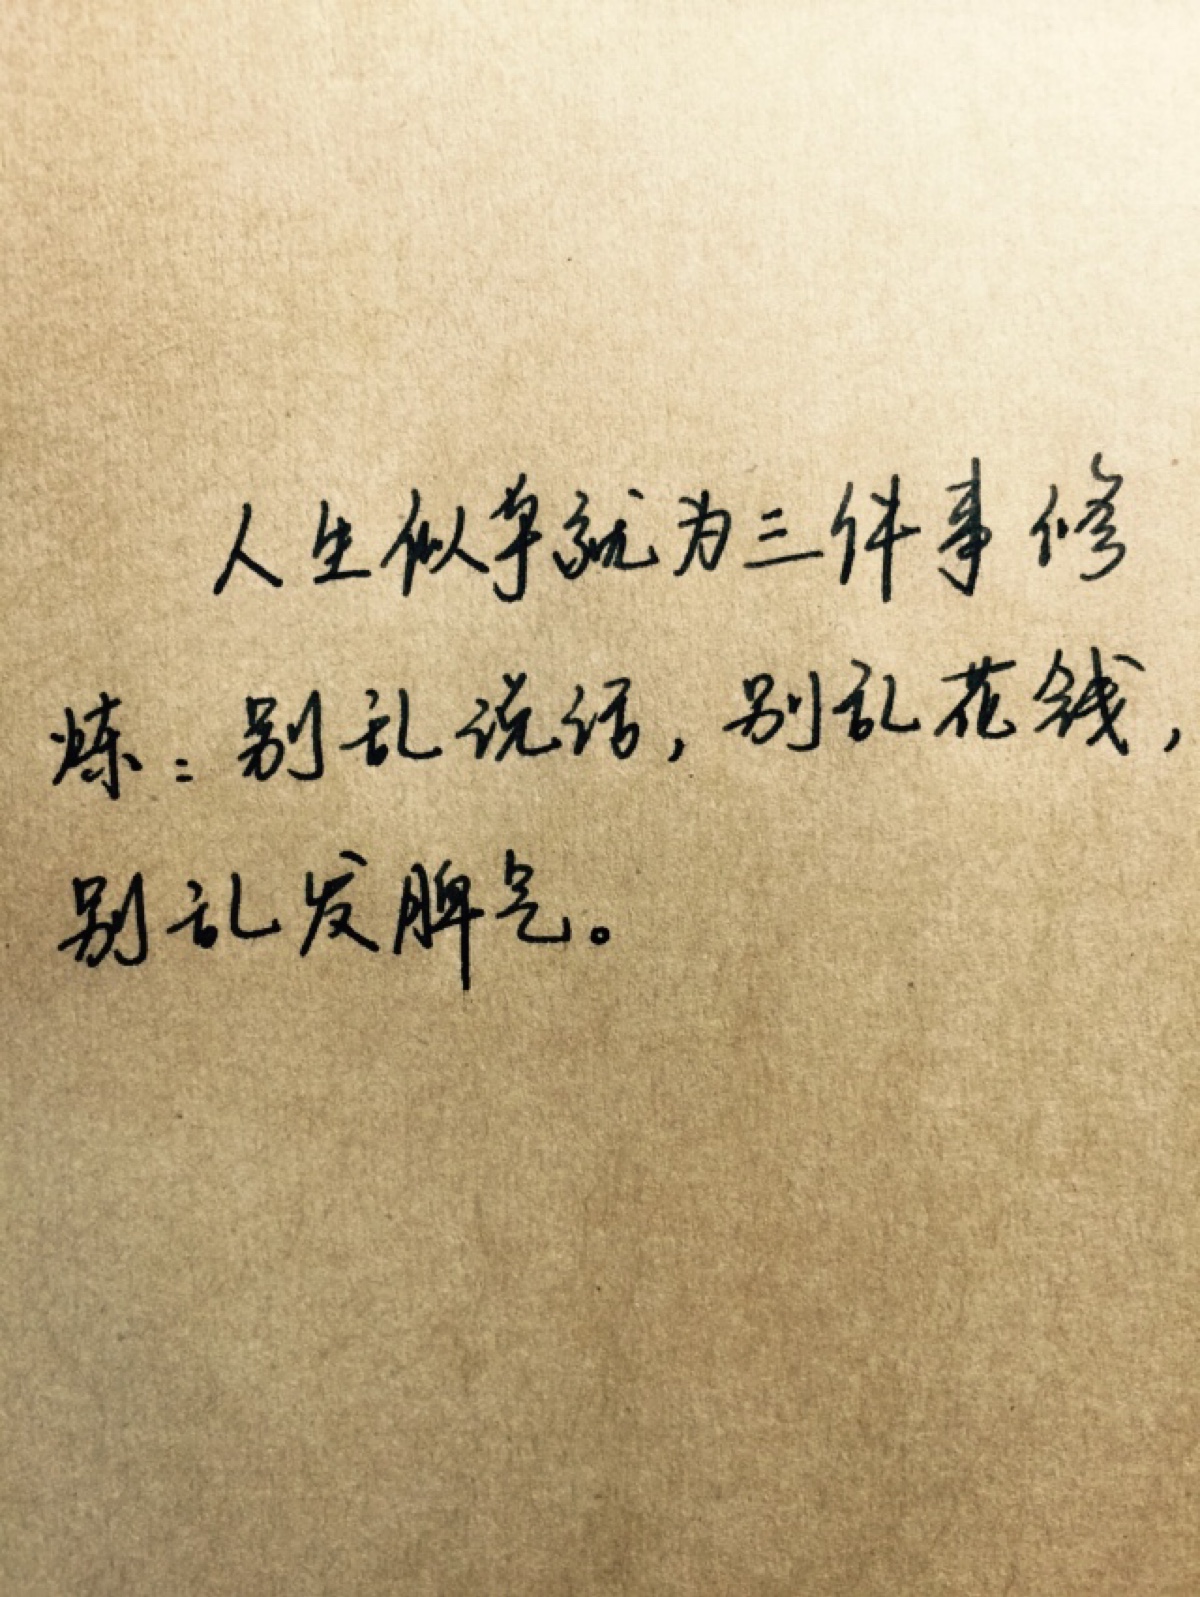 人生似乎就为三件事修
炼:别乱说话,别乱花钱,
别乱发脾气。